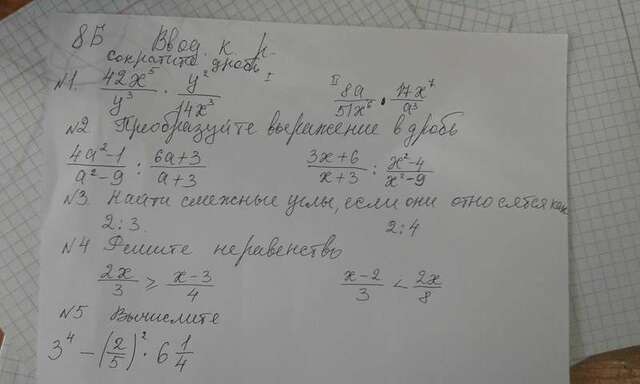 8Б Ввод. к. р.
сократите дроби
I II
№1. 42x⁵/y³ · y²/14x⁵ 8a/51x⁶ · 17x⁷/a³
№2 Преобразуйте выражение в дробь
4a²-1/a²-9 : 6a+3/a+3 3x+6/x+3 : x²-4/x²-9
№3 Найти смежные углы, если они относятся как
2:3. 2:4
№4 Решите неравенство
2x/3 ≥ x-3/4 x-2/3 < 2x/8
№5 Вычислите
3⁴ - (2/5)² · 6 1/4